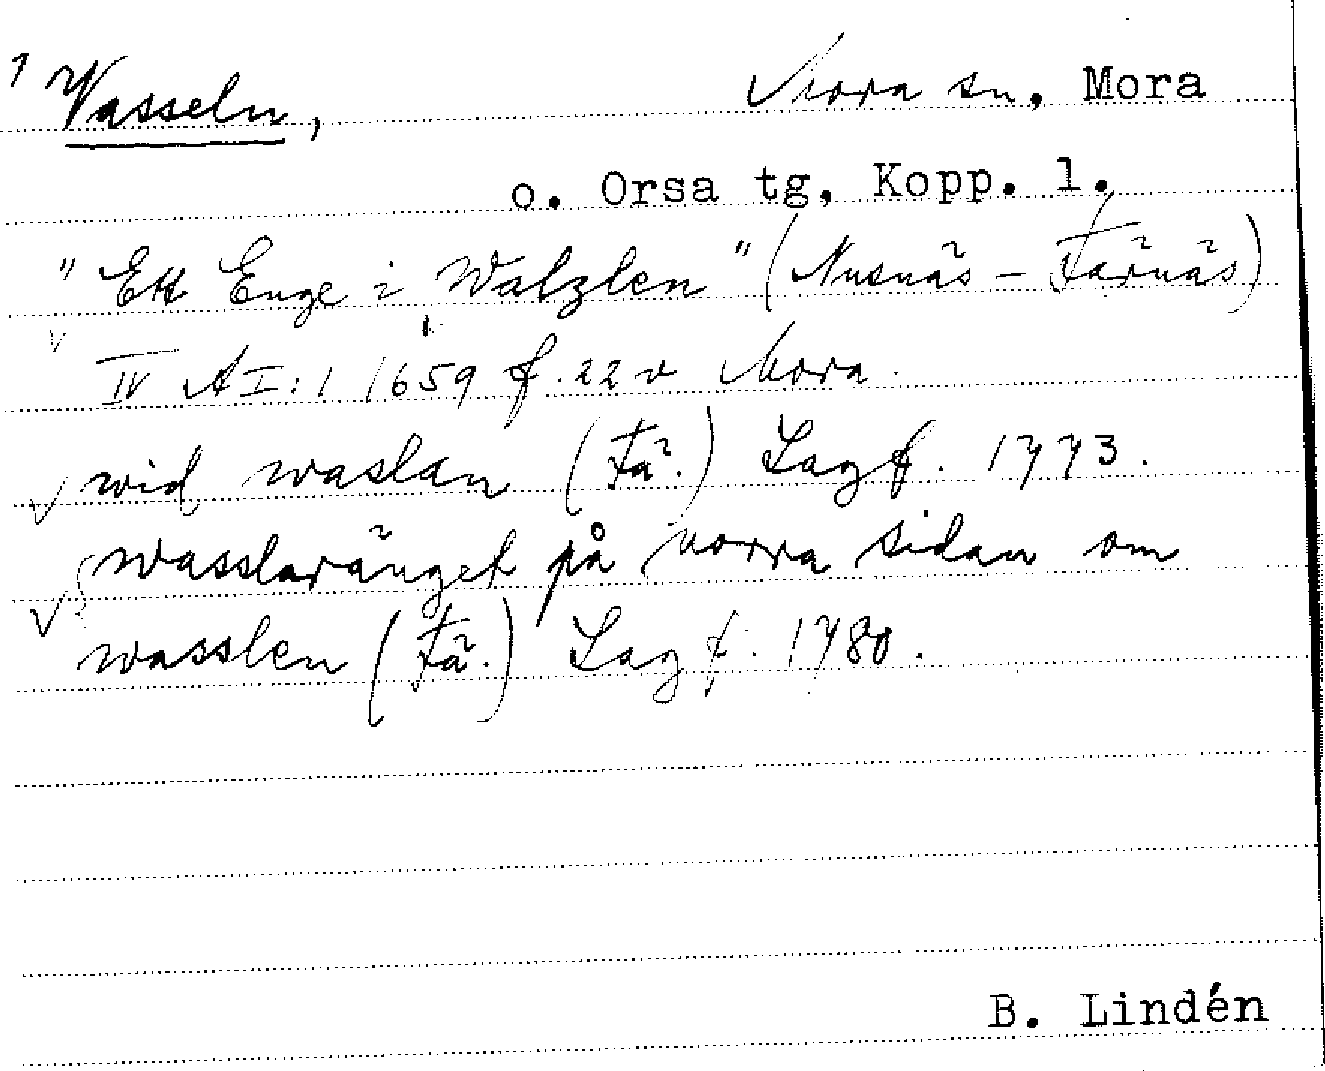 1 Vasseln, Mora sn, Mora
o. Orsa tg, Kopp. l.
"Ett Enge i Walzlen" (Nusnäs - Färnäs)
IV A I:1 1659 f. 22 v Mora.
wid waslan (Fä.) Lagf. 1773.
wasslaränget på norra sidan om
wasslen (Fä.) Lagf. 1780.
B. Lindén